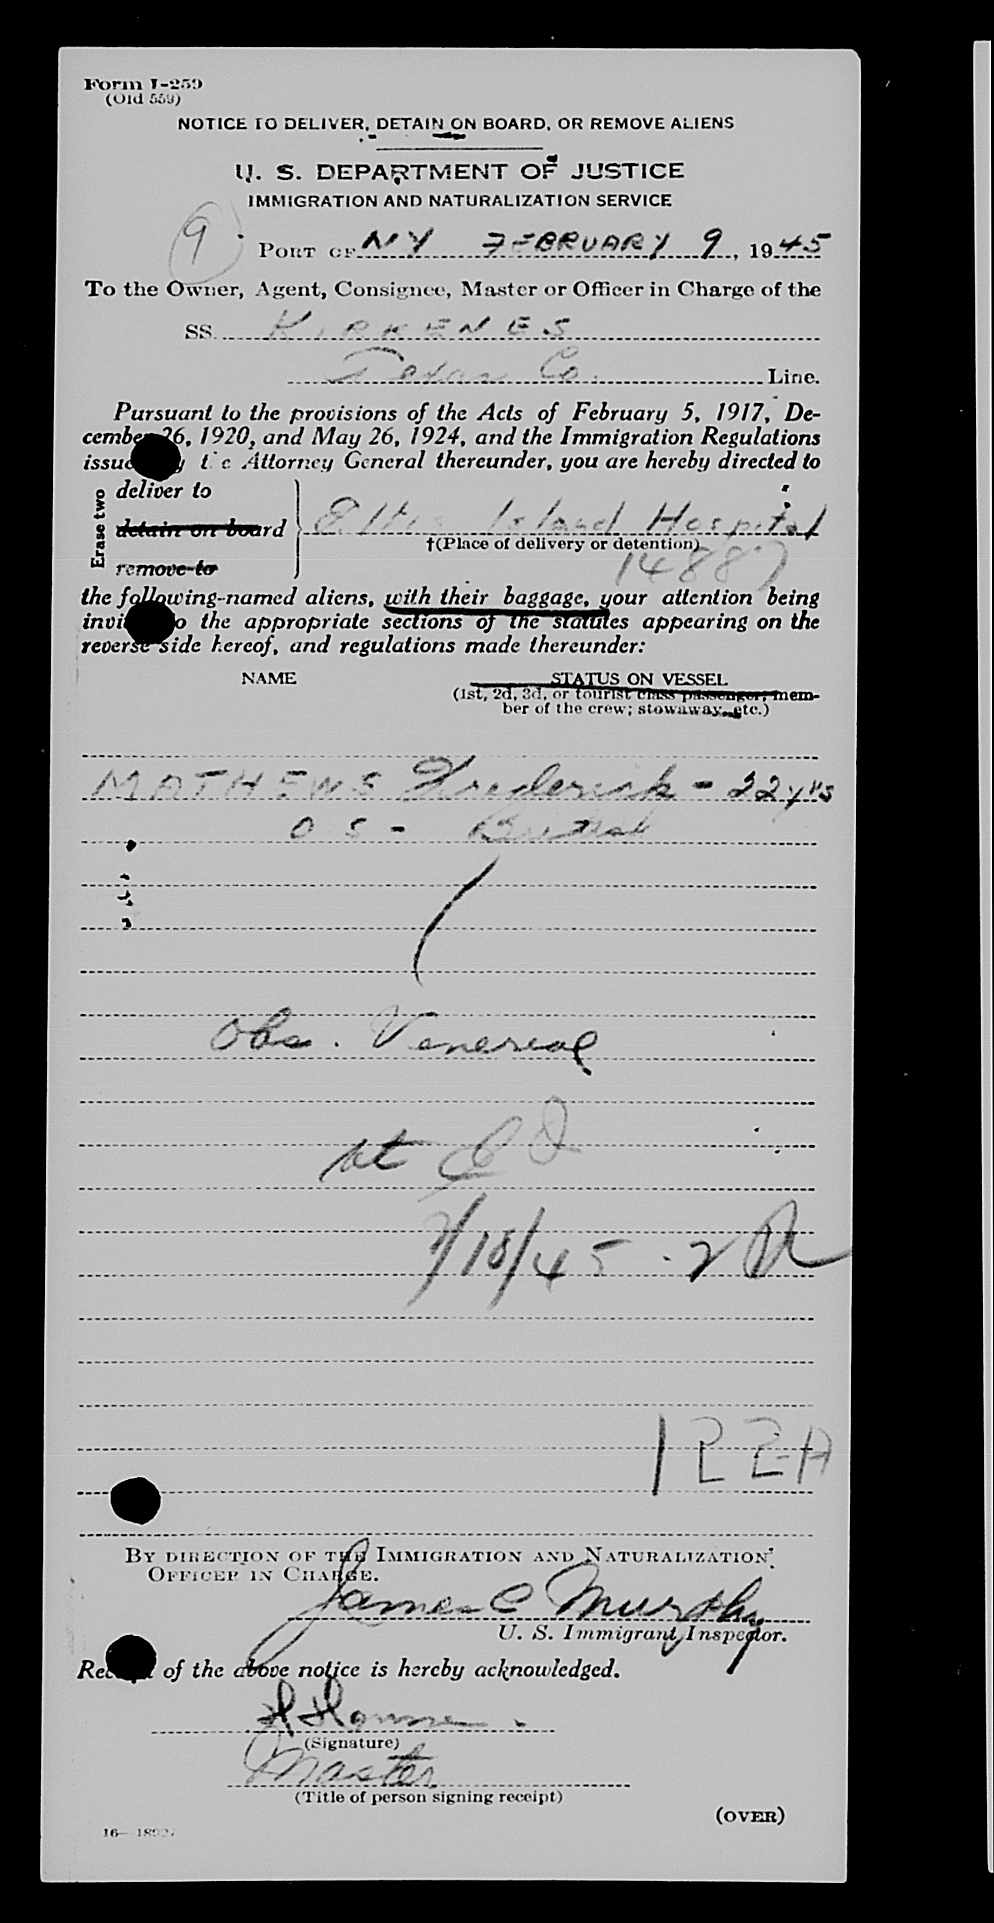 Form I-259
(Old 559)
NOTICE TO DELIVER, DETAIN ON BOARD, OR REMOVE ALIENS
U. S. DEPARTMENT OF JUSTICE
IMMIGRATION AND NATURALIZATION SERVICE
9
PORT OF NY FEBRUARY 9, 1945
To the Owner, Agent, Consignee, Master or Officer in Charge of the
SS. KIRKENES
Texas Co. Line.
Pursuant to the provisions of the Acts of February 5, 1917, De-
cember 26, 1920, and May 26, 1924, and the Immigration Regulations
issued by the Attorney General thereunder, you are hereby directed to
Erase two
deliver to
detain on board
remove to
Ellis Island Hospital
†(Place of delivery or detention)
14887
the following-named aliens, with their baggage, your attention being
invited to the appropriate sections of the statutes appearing on the
reverse side hereof, and regulations made thereunder:
NAME STATUS ON VESSEL
(1st, 2d, 3d, or tourist class passenger; mem-
ber of the crew; stowaway, etc.)
MATHEWS Frederick - 22 yrs
O S - British
Obs. Venereal
at E I
2/18/45 -
122A
BY DIRECTION OF THE IMMIGRATION AND NATURALIZATION
OFFICER IN CHARGE.
James C Murphy
U. S. Immigrant Inspector.
Receipt of the above notice is hereby acknowledged.
(Signature)
Master
(Title of person signing receipt)
(OVER)